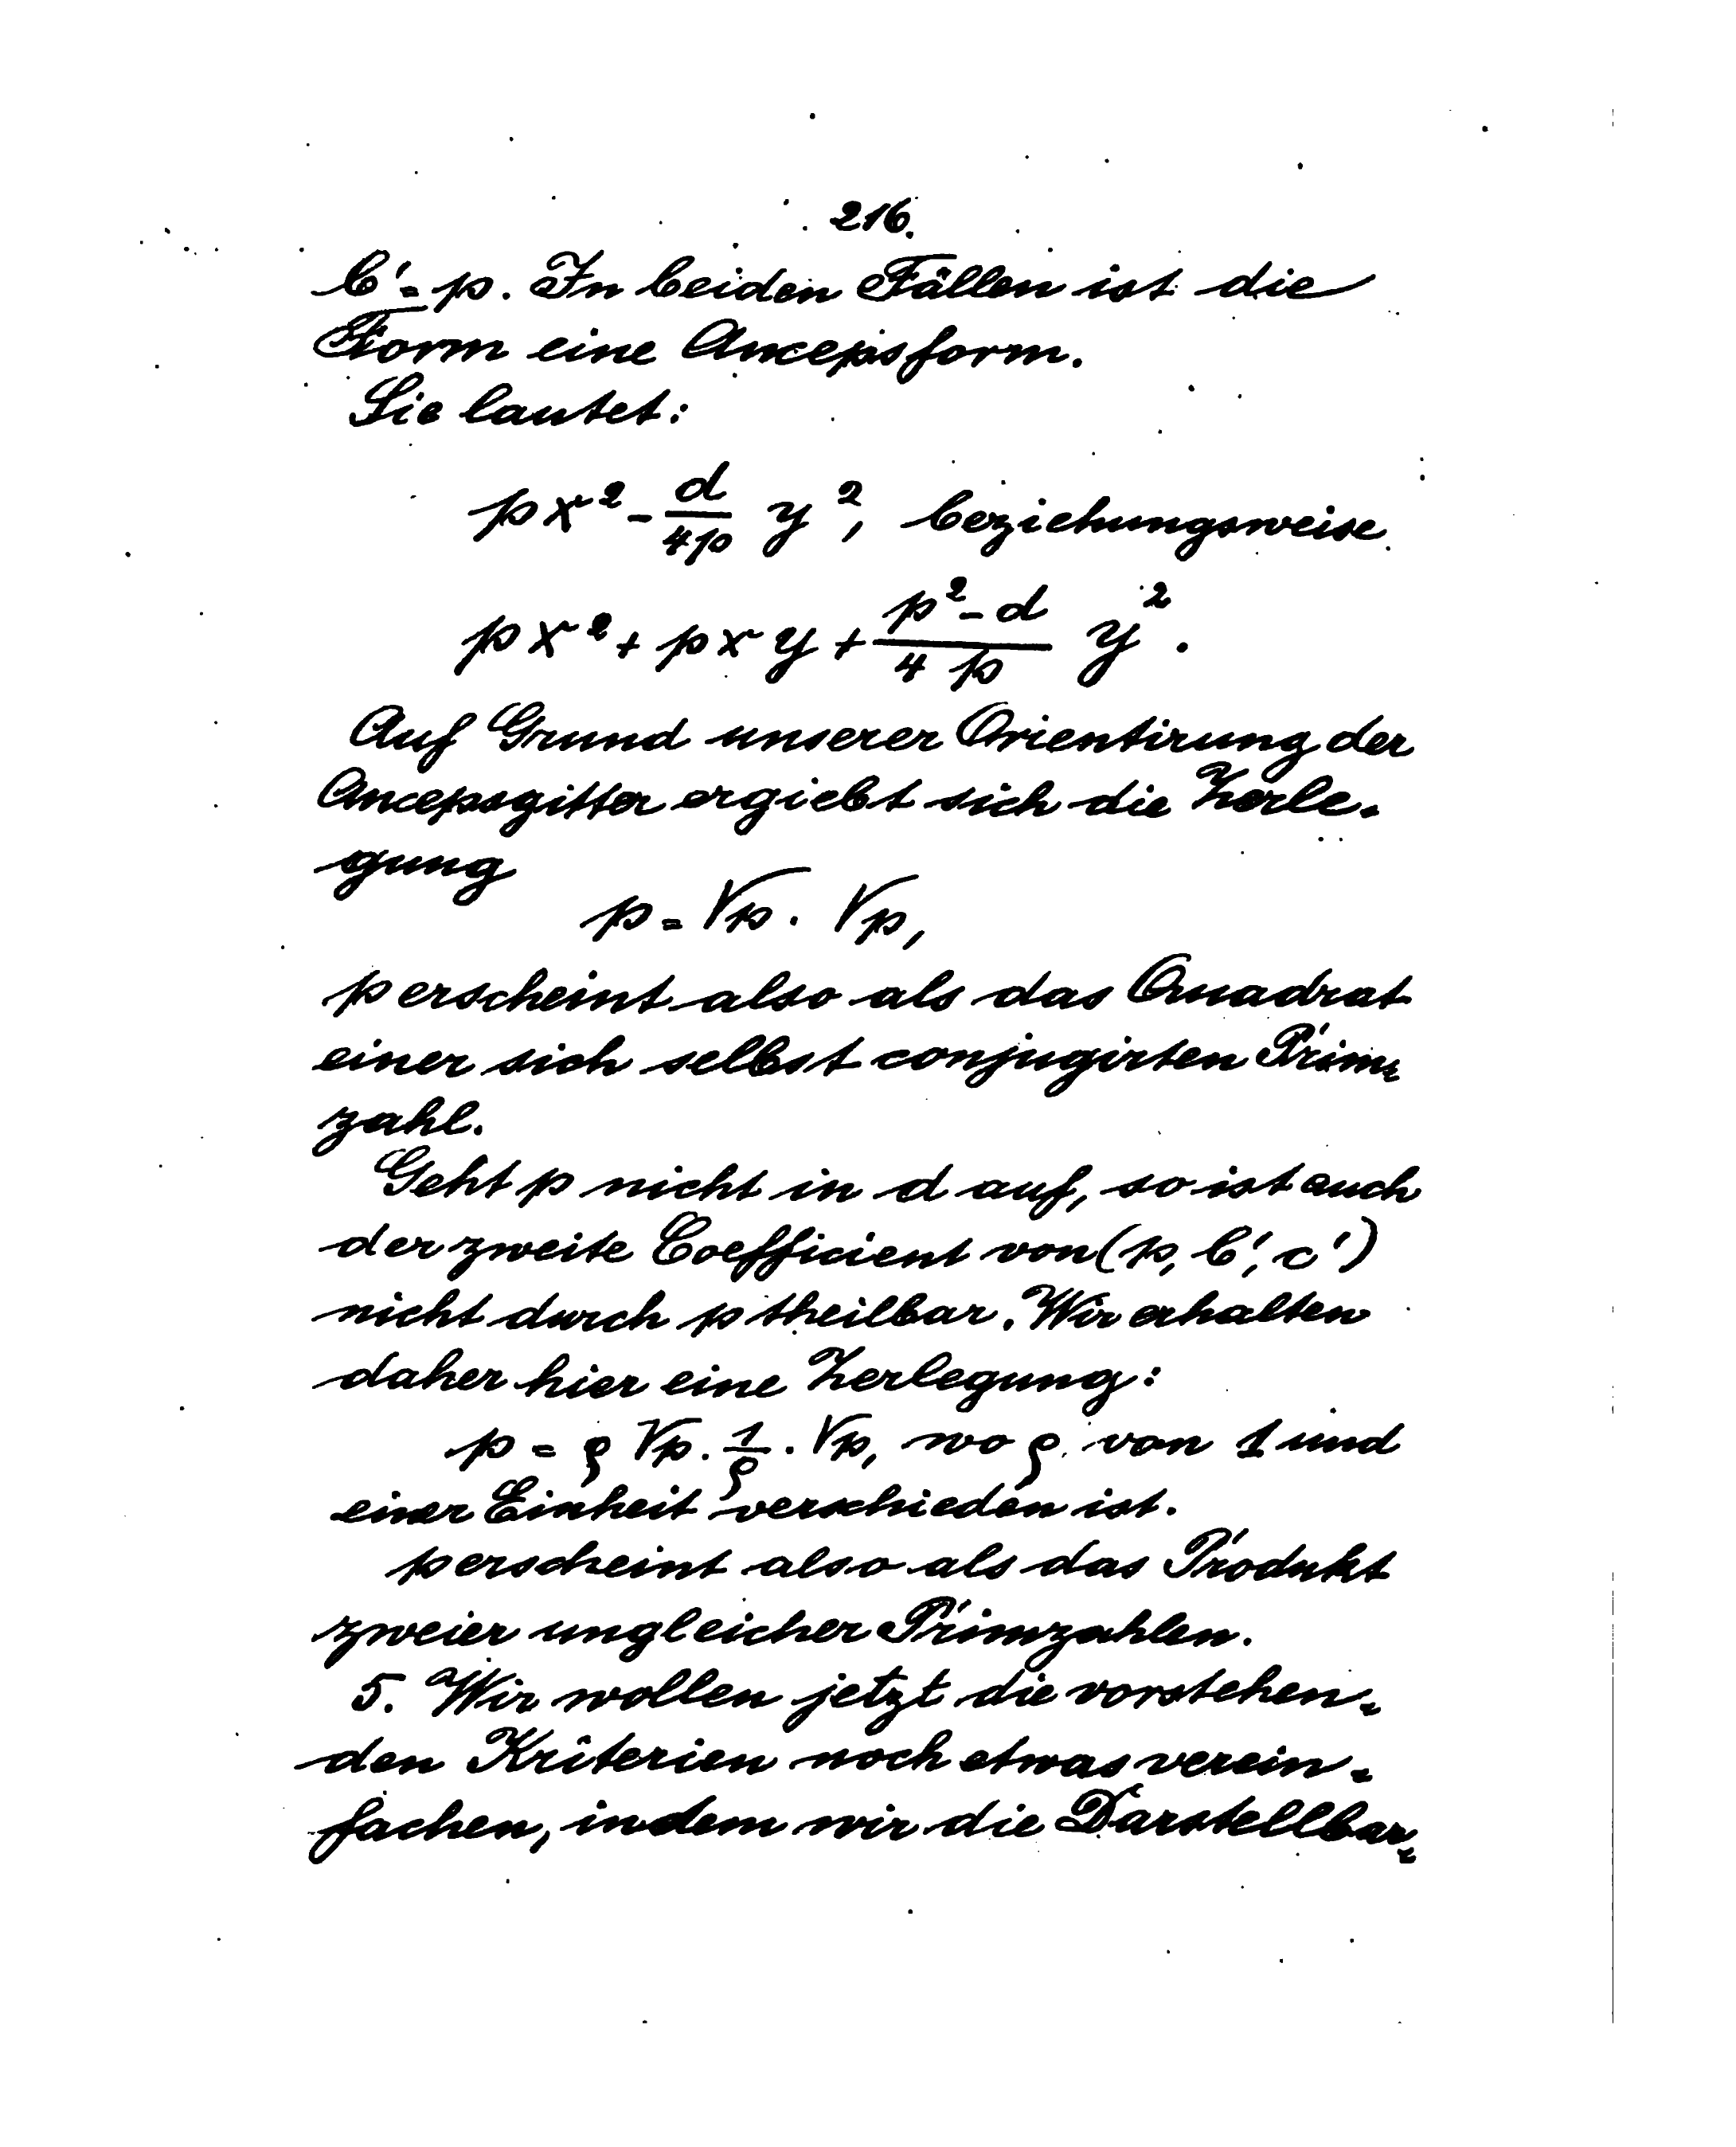 216.
b' = p. In beiden Fällen ist die
Form eine Ancepsform.
Sie lautet:
px² - d/4p y², beziehungsweise
px² + pxy + (p² - d)/4p y².
Auf Grund unserer Orientirung der
Ancepsgitter ergiebt sich die Zerle-
gung
p = √p · √p,
p erscheint also als das Quadrat
einer sich selbst conjugirten Prim-
zahl.
Geht p nicht in d auf, so ist auch
der zweite Coefficient von (p, b', c')
nicht durch p theilbar. Wir erhalten
daher hier eine Zerlegung:
p = ρ √p · 1/ρ · √p, wo ρ von 1 und
einer Einheit verschieden ist.
p erscheint also als das Produkt
zweier ungleicher Primzahlen.
5. Wir wollen jetzt die vorstehen-
den Kriterien noch etwas verein-
fachen, indem wir die Darstellbar-